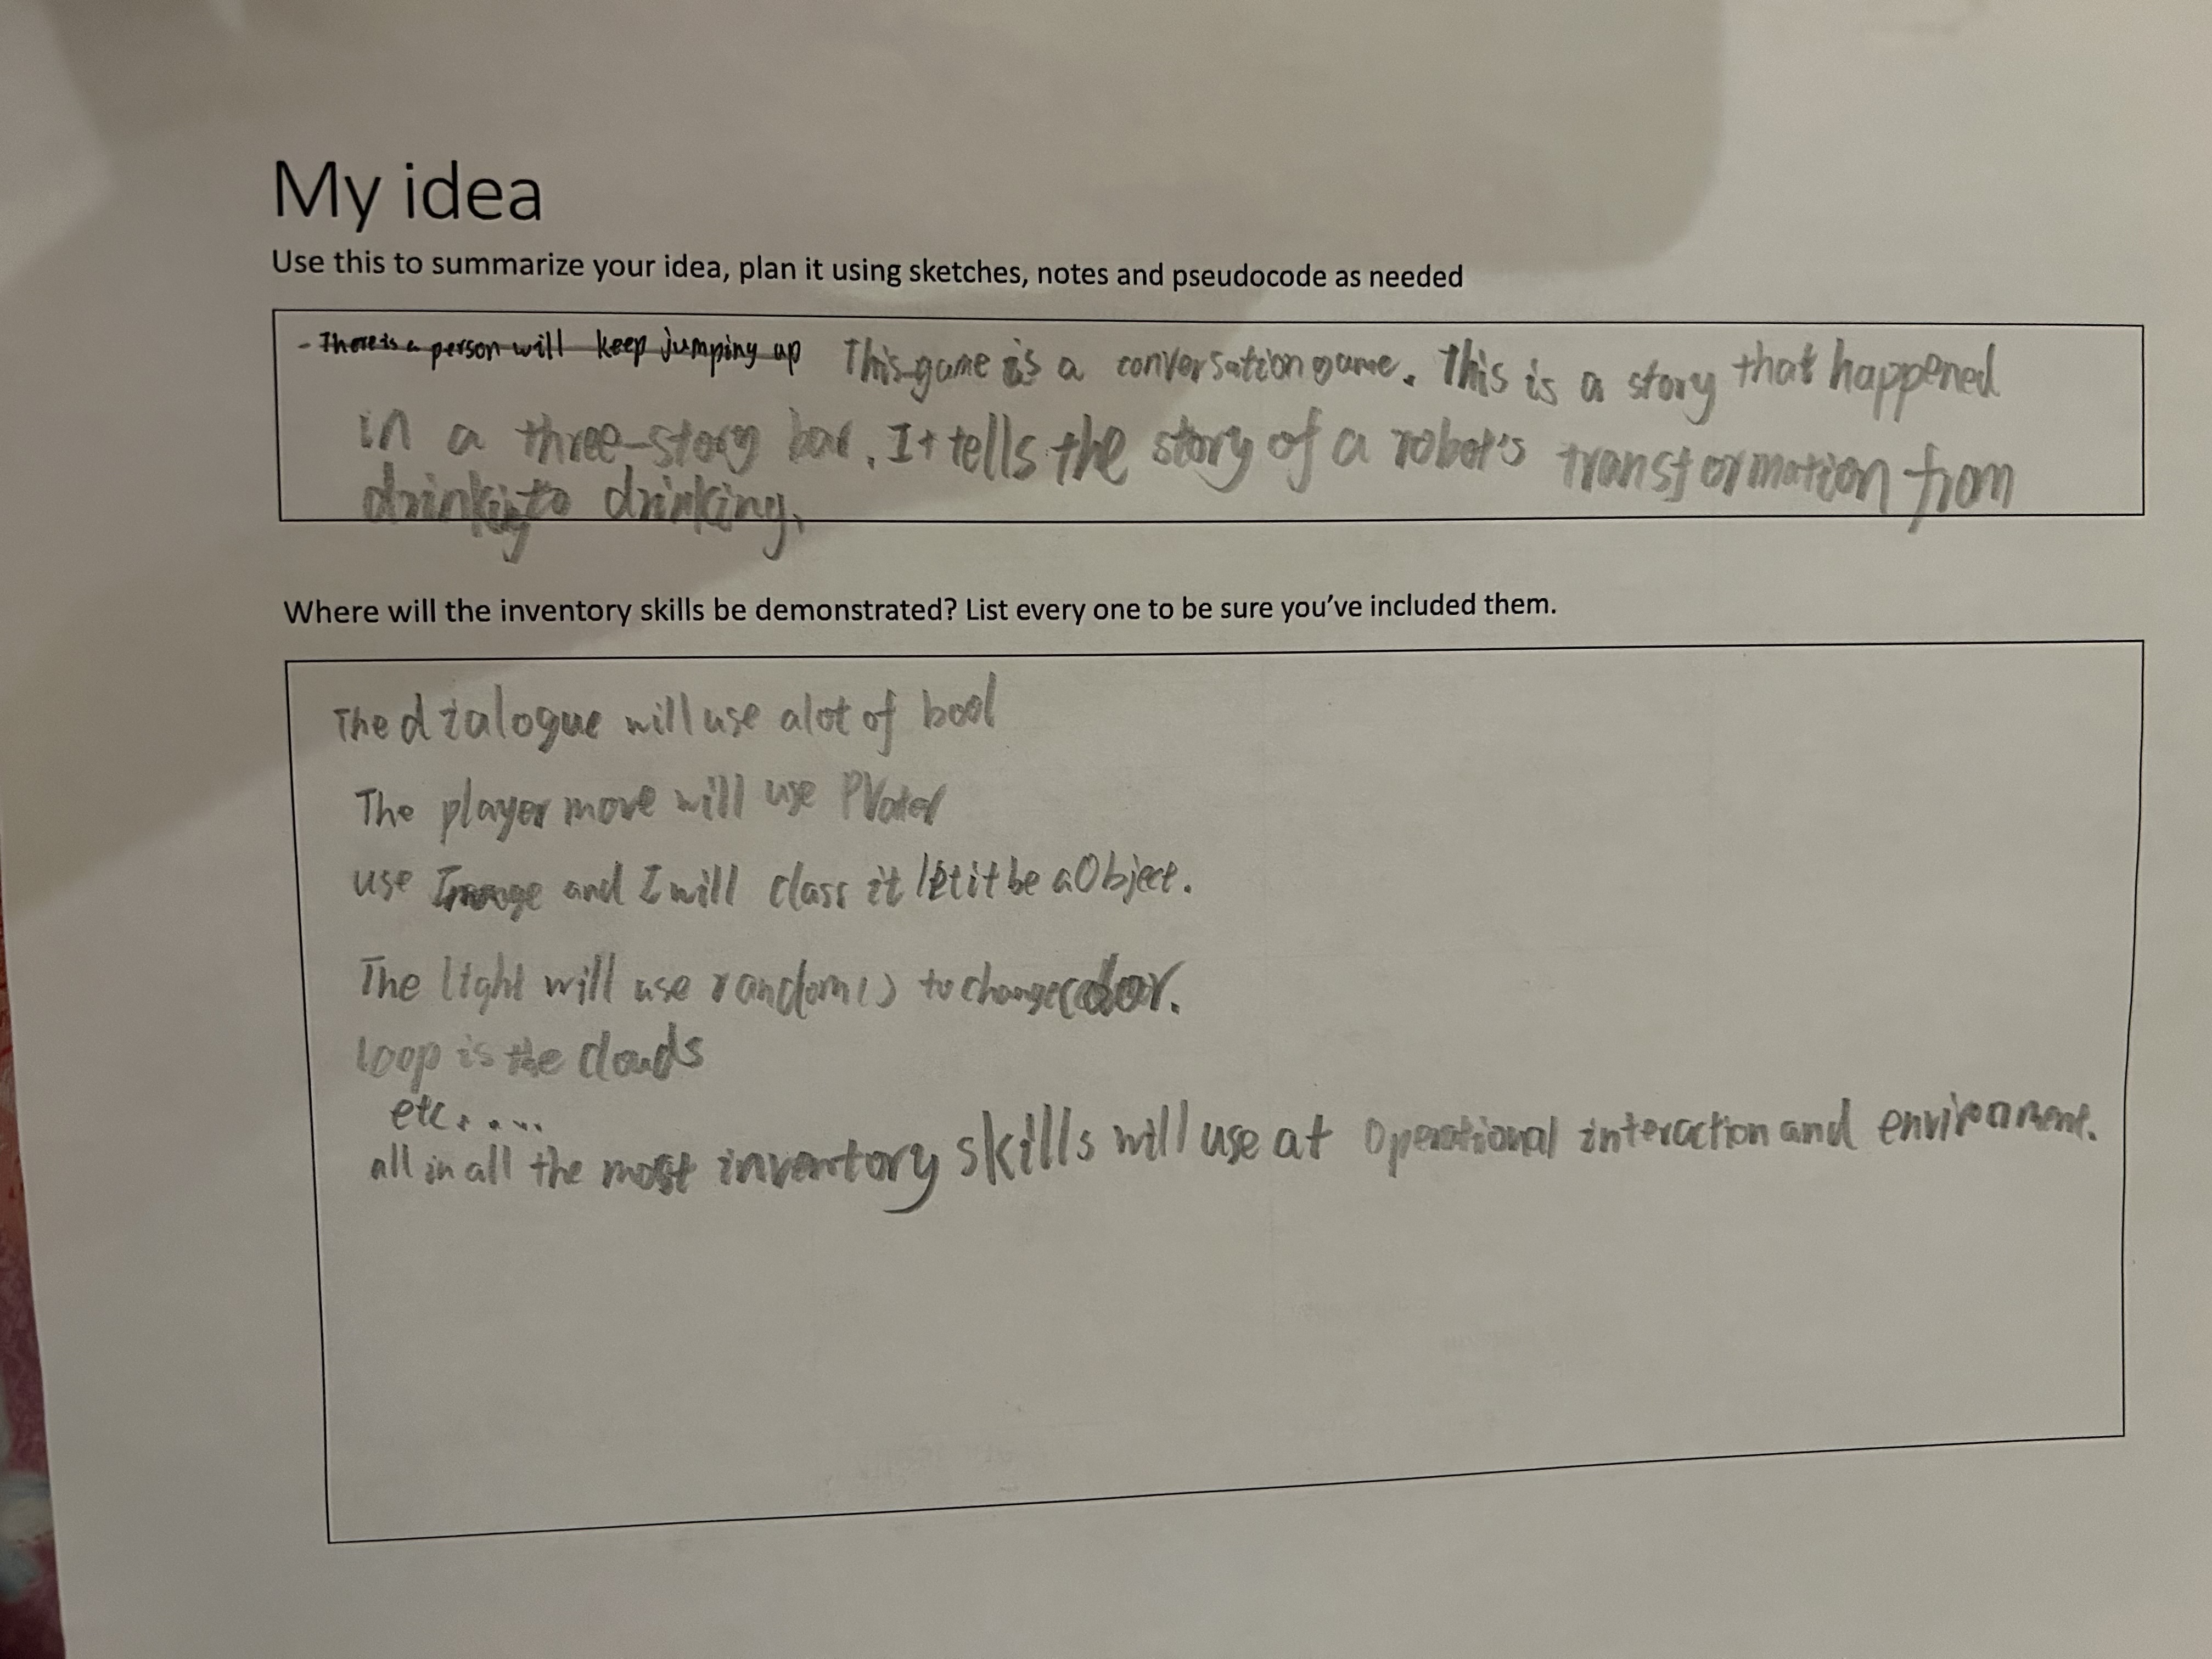 My idea
Use this to summarize your idea, plan it using sketches, notes and pseudocode as needed
- There is a person will keep jumping up This game is a conversation game. This is a story that happened
in a three-story bar. It tells the story of a robot's transformation from
drinking to drinking.
Where will the inventory skills be demonstrated? List every one to be sure you've included them.
The dialogue will use alot of bool
The player move will use
use Image and I will class it let it be a Object.
The light will use random() to change color.
Loop is the clouds
etc.....
all in all the most inventory skills will use at Operational interaction and environment.